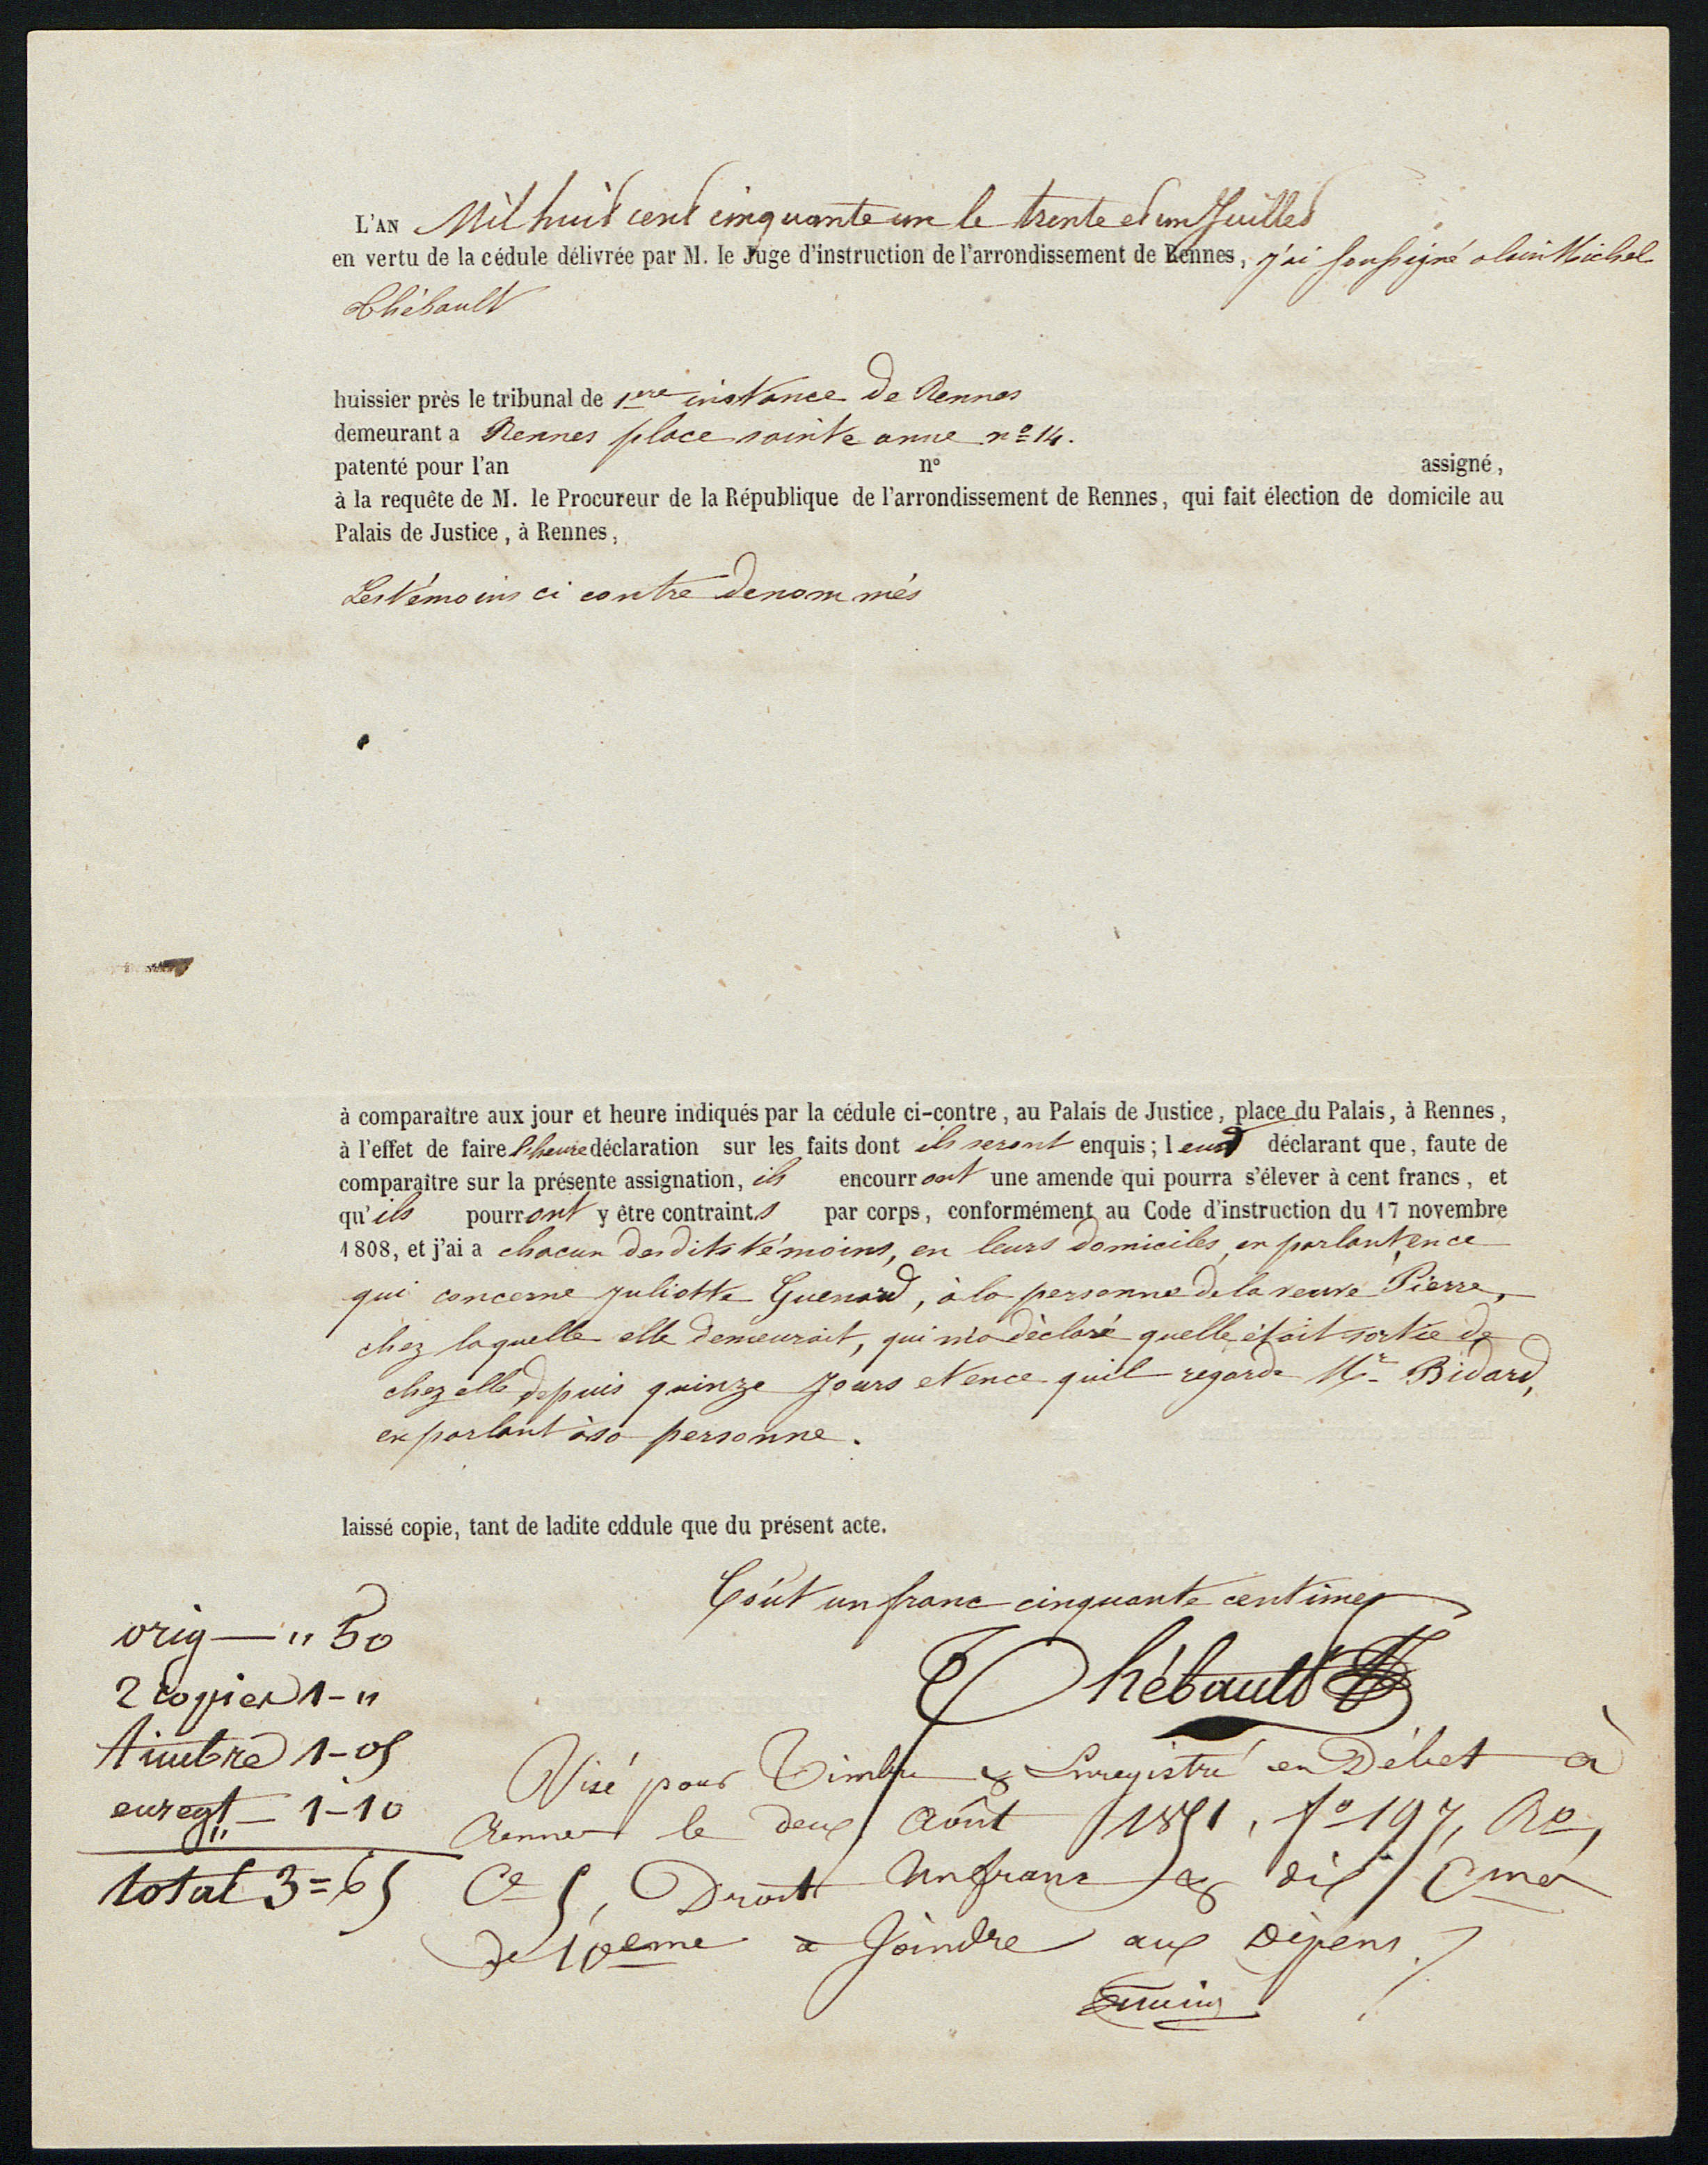 L'AN Mil huit cent cinquante un le trente et un Juillet
en vertu de la cédule délivrée par M. le Juge d'instruction de l'arrondissement de Rennes, j'ai soussigné alain Michel
Thébault
huissier près le tribunal de 1ere instance de Rennes
demeurant a Rennes place sainte anne nº 14.
patenté pour l'an nº assigné,
à la requête de M. le Procureur de la République de l'arrondissement de Rennes, qui fait élection de domicile au
Palais de Justice, à Rennes,
Les témoins ci contre denommés
à comparaître aux jour et heure indiqués par la cédule ci-contre, au Palais de Justice, place du Palais, à Rennes,
à l'effet de faire l'heure déclaration sur les faits dont ils seront enquis; leur déclarant que, faute de
comparaître sur la présente assignation, ils encourront une amende qui pourra s'élever à cent francs, et
qu'ils pourront y être contraints par corps, conformément au Code d'instruction du 17 novembre
1808, et j'ai a chacun desdits témoins, en leurs domiciles, en parlant, en ce
qui concerne Juliette Guenard, à la personne de la veuve Pierre,
chez laquelle elle demeurait, qui m'a déclaré quelle était sortie de
chez elle depuis quinze Jours et en ce quil regarde Mr Bidard,
en parlant à sa personne.
laissé copie, tant de ladite cddule que du présent acte.
Coût un franc cinquante centimes
Thébault
orig — " 50
2 copies 1 - "
timbre 1 - 05
enregt — 1 - 10
total 3 = 65
Visé pour Timbre & Enregistré en Débet à
Rennes le deux Août 1851, fº 197, Rº,
Ce 5, Droit un franc & dix Cmes
de 10eme a Joindre aux Dépens.